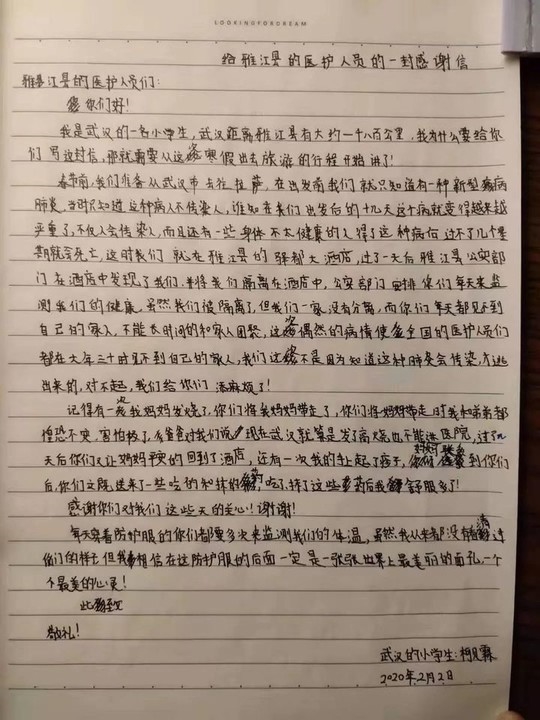 LOOKINGFORDREAM
给雅江县的医护人员的一封感谢信
雅江县的医护人员们:
你们好!
我是武汉的一名小学生,武汉距离雅江县有大约一千八百公里,我为什么要给你
们写这封信,那就需要从这次寒假出去旅游的行程开始讲了!
春节前,我们准备从武汉市去往拉萨,在出发前我们就只知道有一种新型病
肺炎,当时只知道这种病不传人,谁知在我们出发后的十九天这个病就变得越来越
严重了,不仅会传染人,而且还有一些身体不太健康的人得了这种病后过不了几个星
期就会死亡,这时我们就在雅江县的大酒店,过了一天后雅江县公安部
门在酒店中发现了我们,并将我们隔离在酒店中,公安部门安排你们每天来监
测我们的健康,虽然我们被隔离了,但我们一家没有分离,而你们每天都见不到
自己的家人,不能长时间的和家人团聚,这次偶然的病情使全国的医护人员们
都在大年三十时见不到自己的家人,我们这次不是因为知道这种肺炎会传染,才逃
出来的,对不起,我们给你们添麻烦了!
记得有一次我妈妈发烧了,你们将我妈妈带走了,你们将妈妈带走时我和弟弟都
惶恐不安,害怕极了,爸爸对我们说现在武汉就算是发了高烧也不能进医院,过了几
天后你们又让妈妈平安的回到了酒店,还有一次我的手上起了疹子,到你们
后,你们立即送来了一些吃的和抹的药,吃了、抹了这些药后我舒服多了!
感谢你们对我们这些天的关心!谢谢!
每天穿着防护服的你们都要多次来监测我们的体温,虽然我从来都没有看清过
你们的样子但我相信在这防护服的后面一定是一张张世界上最美丽的面孔,一个
个最美的心灵!
此致
敬礼!
武汉的小学生:柯见霖
2020年2月2日